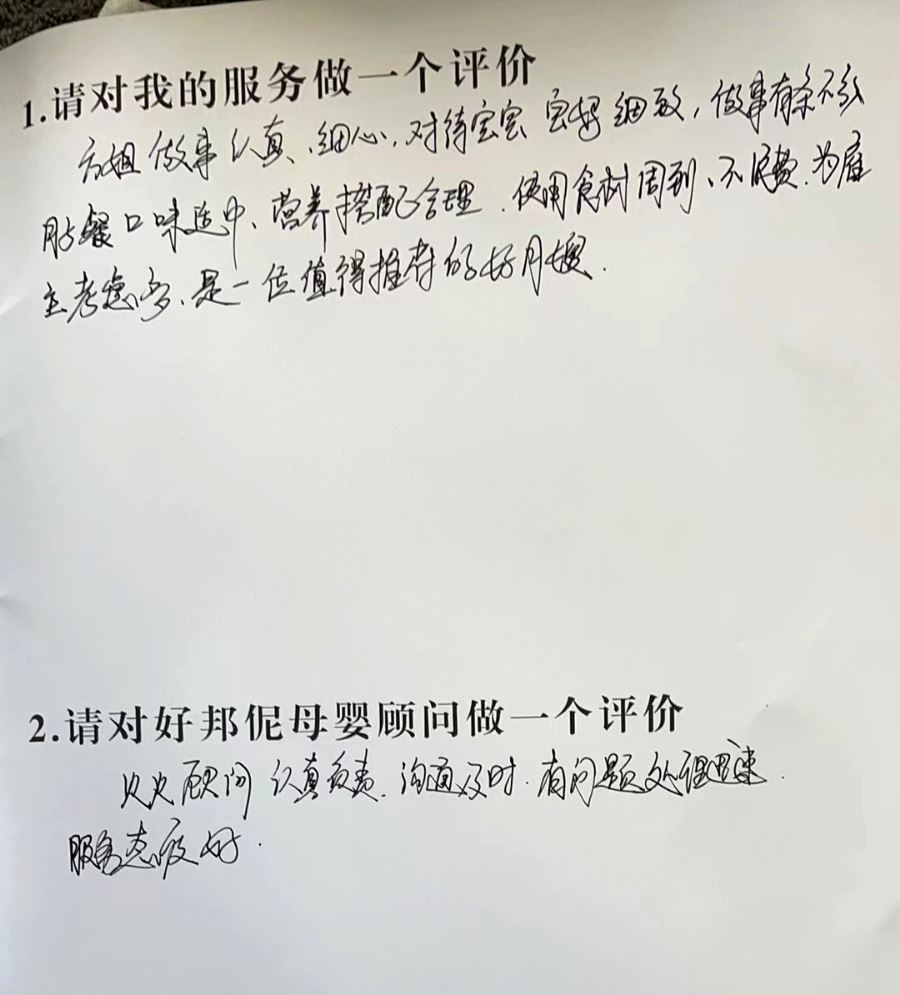 1.请对我的服务做一个评价
方姐做事认真、细心,对待宝宝 细致,做事有条不紊
月子餐口味适中、营养搭配合理.使用食材周到、不浪费.为雇
主考虑多、是一位值得推荐的好月嫂.
2.请对好邦伲母婴顾问做一个评价
顾问认真负责.沟通及时.有问题处理迅速.
服务态度好.